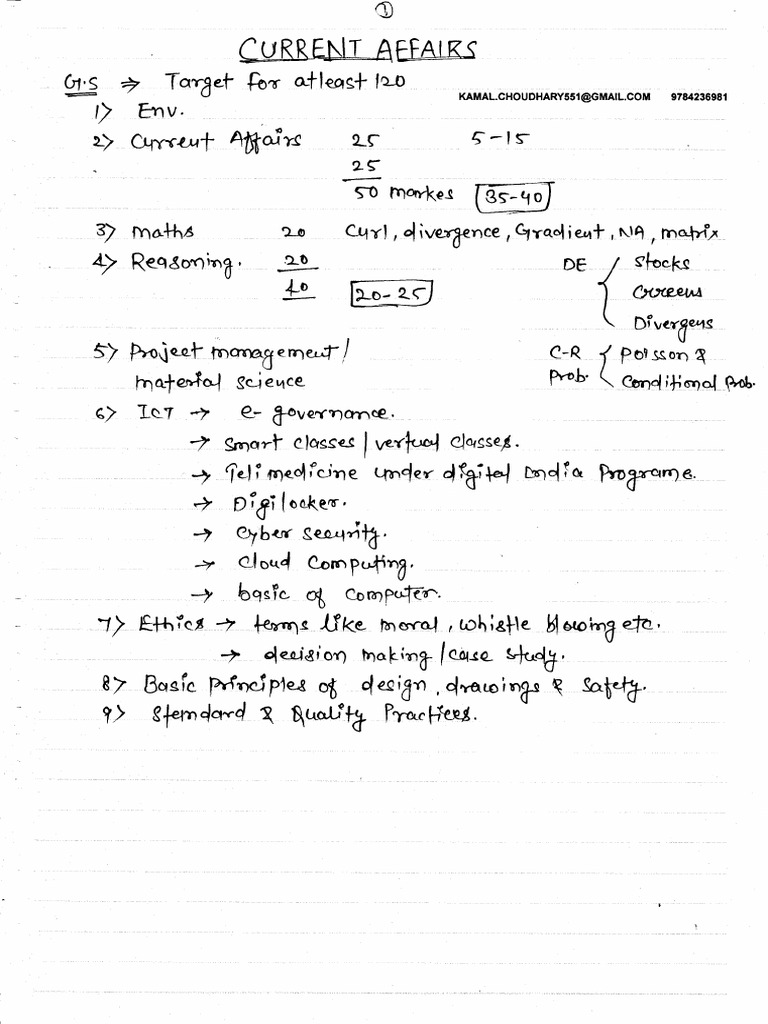 1
CURRENT AFFAIRS
G.S ⇒ Target for atleast 120
KAMAL.CHOUDHARY551@GMAIL.COM 9784236981
1) Env.
2) Current Affairs 25 5-15
25
50 markes 35-40
3) maths 20 Curl, divergence, Gradient, NA, matrix
4) Reasoning. 20 DE Stocks
40 20-25 Grreens
Divergens
5) Project management/ C-R Poisson &
material science Prob. Conditional Prob.
6) ICT → e-governance.
→ smart classes/vertual classes.
→ Telimedicine under digital India Programe.
→ Digilocker.
→ cyber security.
→ cloud computing.
→ basic of computer.
7) Ethics → terms like moral, whistle blowing etc.
→ decision making/case study.
8) Basic principles of design, drawings & safety.
9) Stemdard & Quality Practices.